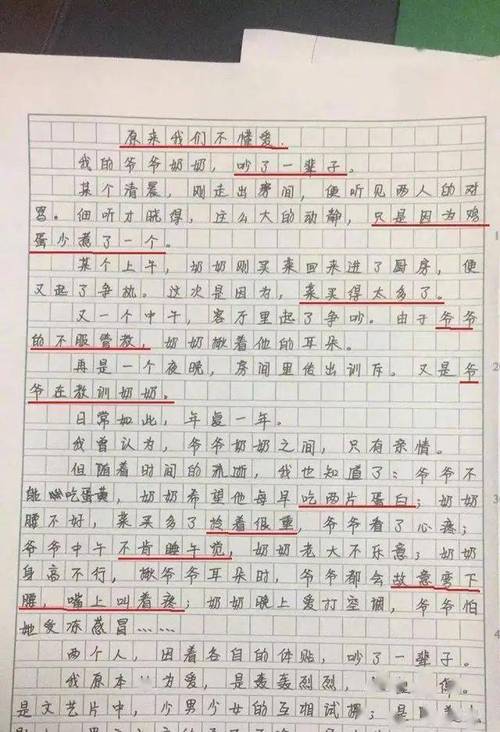 原来我们不懂爱
我的爷爷奶奶，吵了一辈子。
某个清晨，刚走出房间，便听见两人的对
骂。细听才晓得，这么大的动静，只是因为鸡
蛋少煮了一个。
某个上午，奶奶刚买菜回来进了厨房，便
又起了争执。这次是因为，菜买得太多了。
又一个中午，客厅里起了争吵。由于爷爷
的不服管教，奶奶揪着他的耳朵。
再是一个夜晚，房间里传出训斥。又是爷
爷在教训奶奶。
日常如此，年复一年。
我曾认为，爷爷奶奶之间，只有亲情。
但随着时间的流逝，我也知道了：爷爷不
能吃蛋黄，奶奶希望他每早吃两片蛋白；奶奶
腰不好，菜买多了拎着很重，爷爷看了心疼；
爷爷中午不肯睡午觉，奶奶老大不乐意；奶奶
身高不行，揪爷爷耳朵时，爷爷都会故意弯下
腰，嘴上叫着疼；奶奶晚上爱打空调，爷爷怕
她受冻感冒……
两个人，因着各自的体贴，吵了一辈子。
我原本以为爱，是轰轰烈烈，
是文艺片中，少男少女的互相试探；是